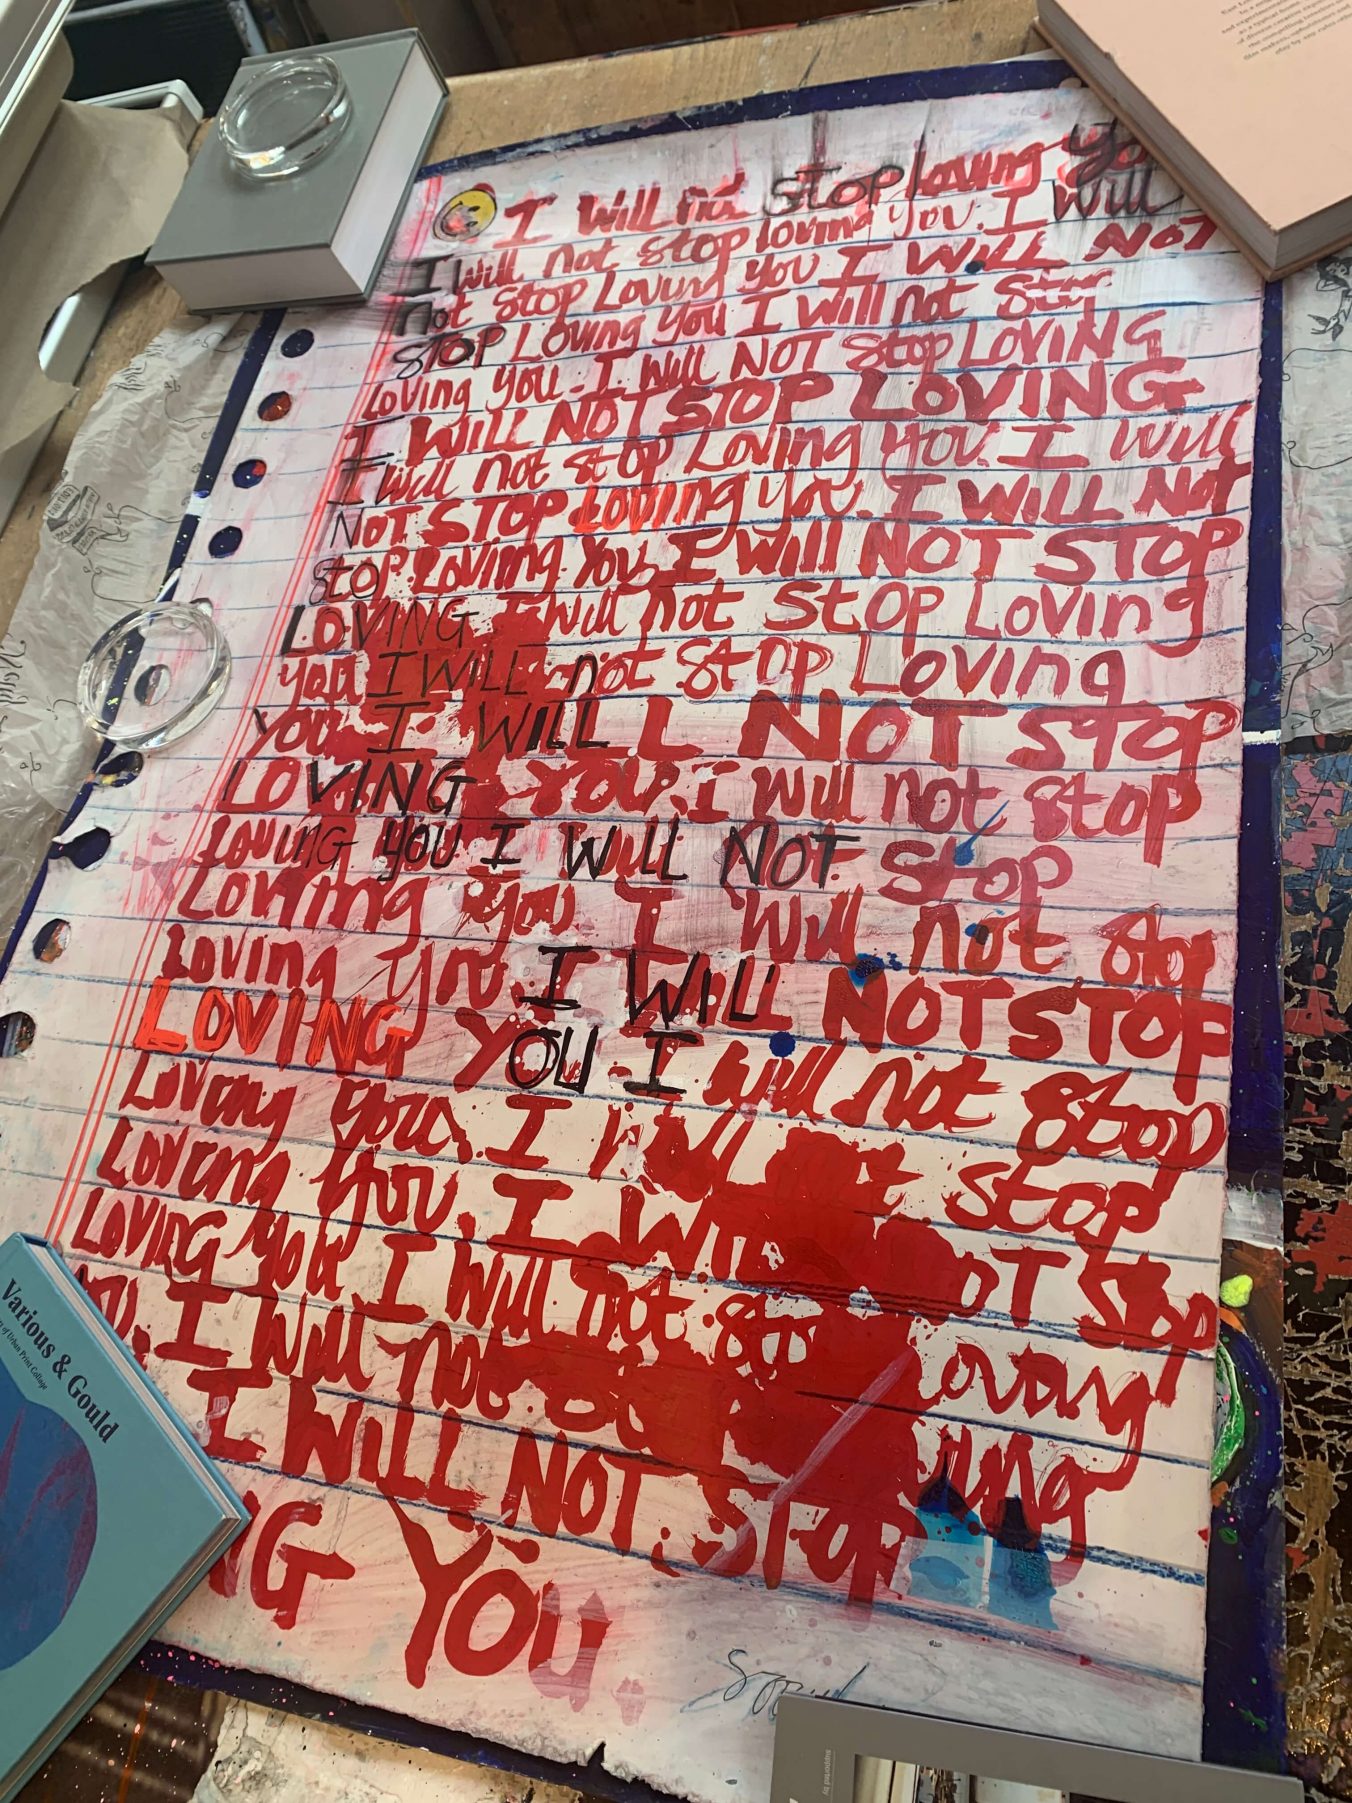 I Will not STOP loving you
I Will not Stop loving you. I Will
Not Stop Loving you I WILL NOT
STOP Loving You I Will not Stop
Loving you. I Will NOT Stop LOVING
I WILL NOT STOP LOVING
I Will not stop Loving You. I Will
NOT STOP Loving you. I WILL Not
STOP Loving You. I Will NOT STOP
LOVING I Will not Stop Loving
you I WILL not Stop Loving
You I WILL NOT STOP
LOVING YOU. I Will not Stop
Loving you I Will NOT Stop
Loving you I Will not Stop
Loving you I WILL NOT STOP
LOVING YOU I will not Stop
Loving you. I Will Stop
Loving You, I WILL NOT Stop
LOVING You I Will not Stop Loving
I Will not
I WILL NOT. STOP
NG YOU.
Various & Gould
of Urban Print Collage
supported by